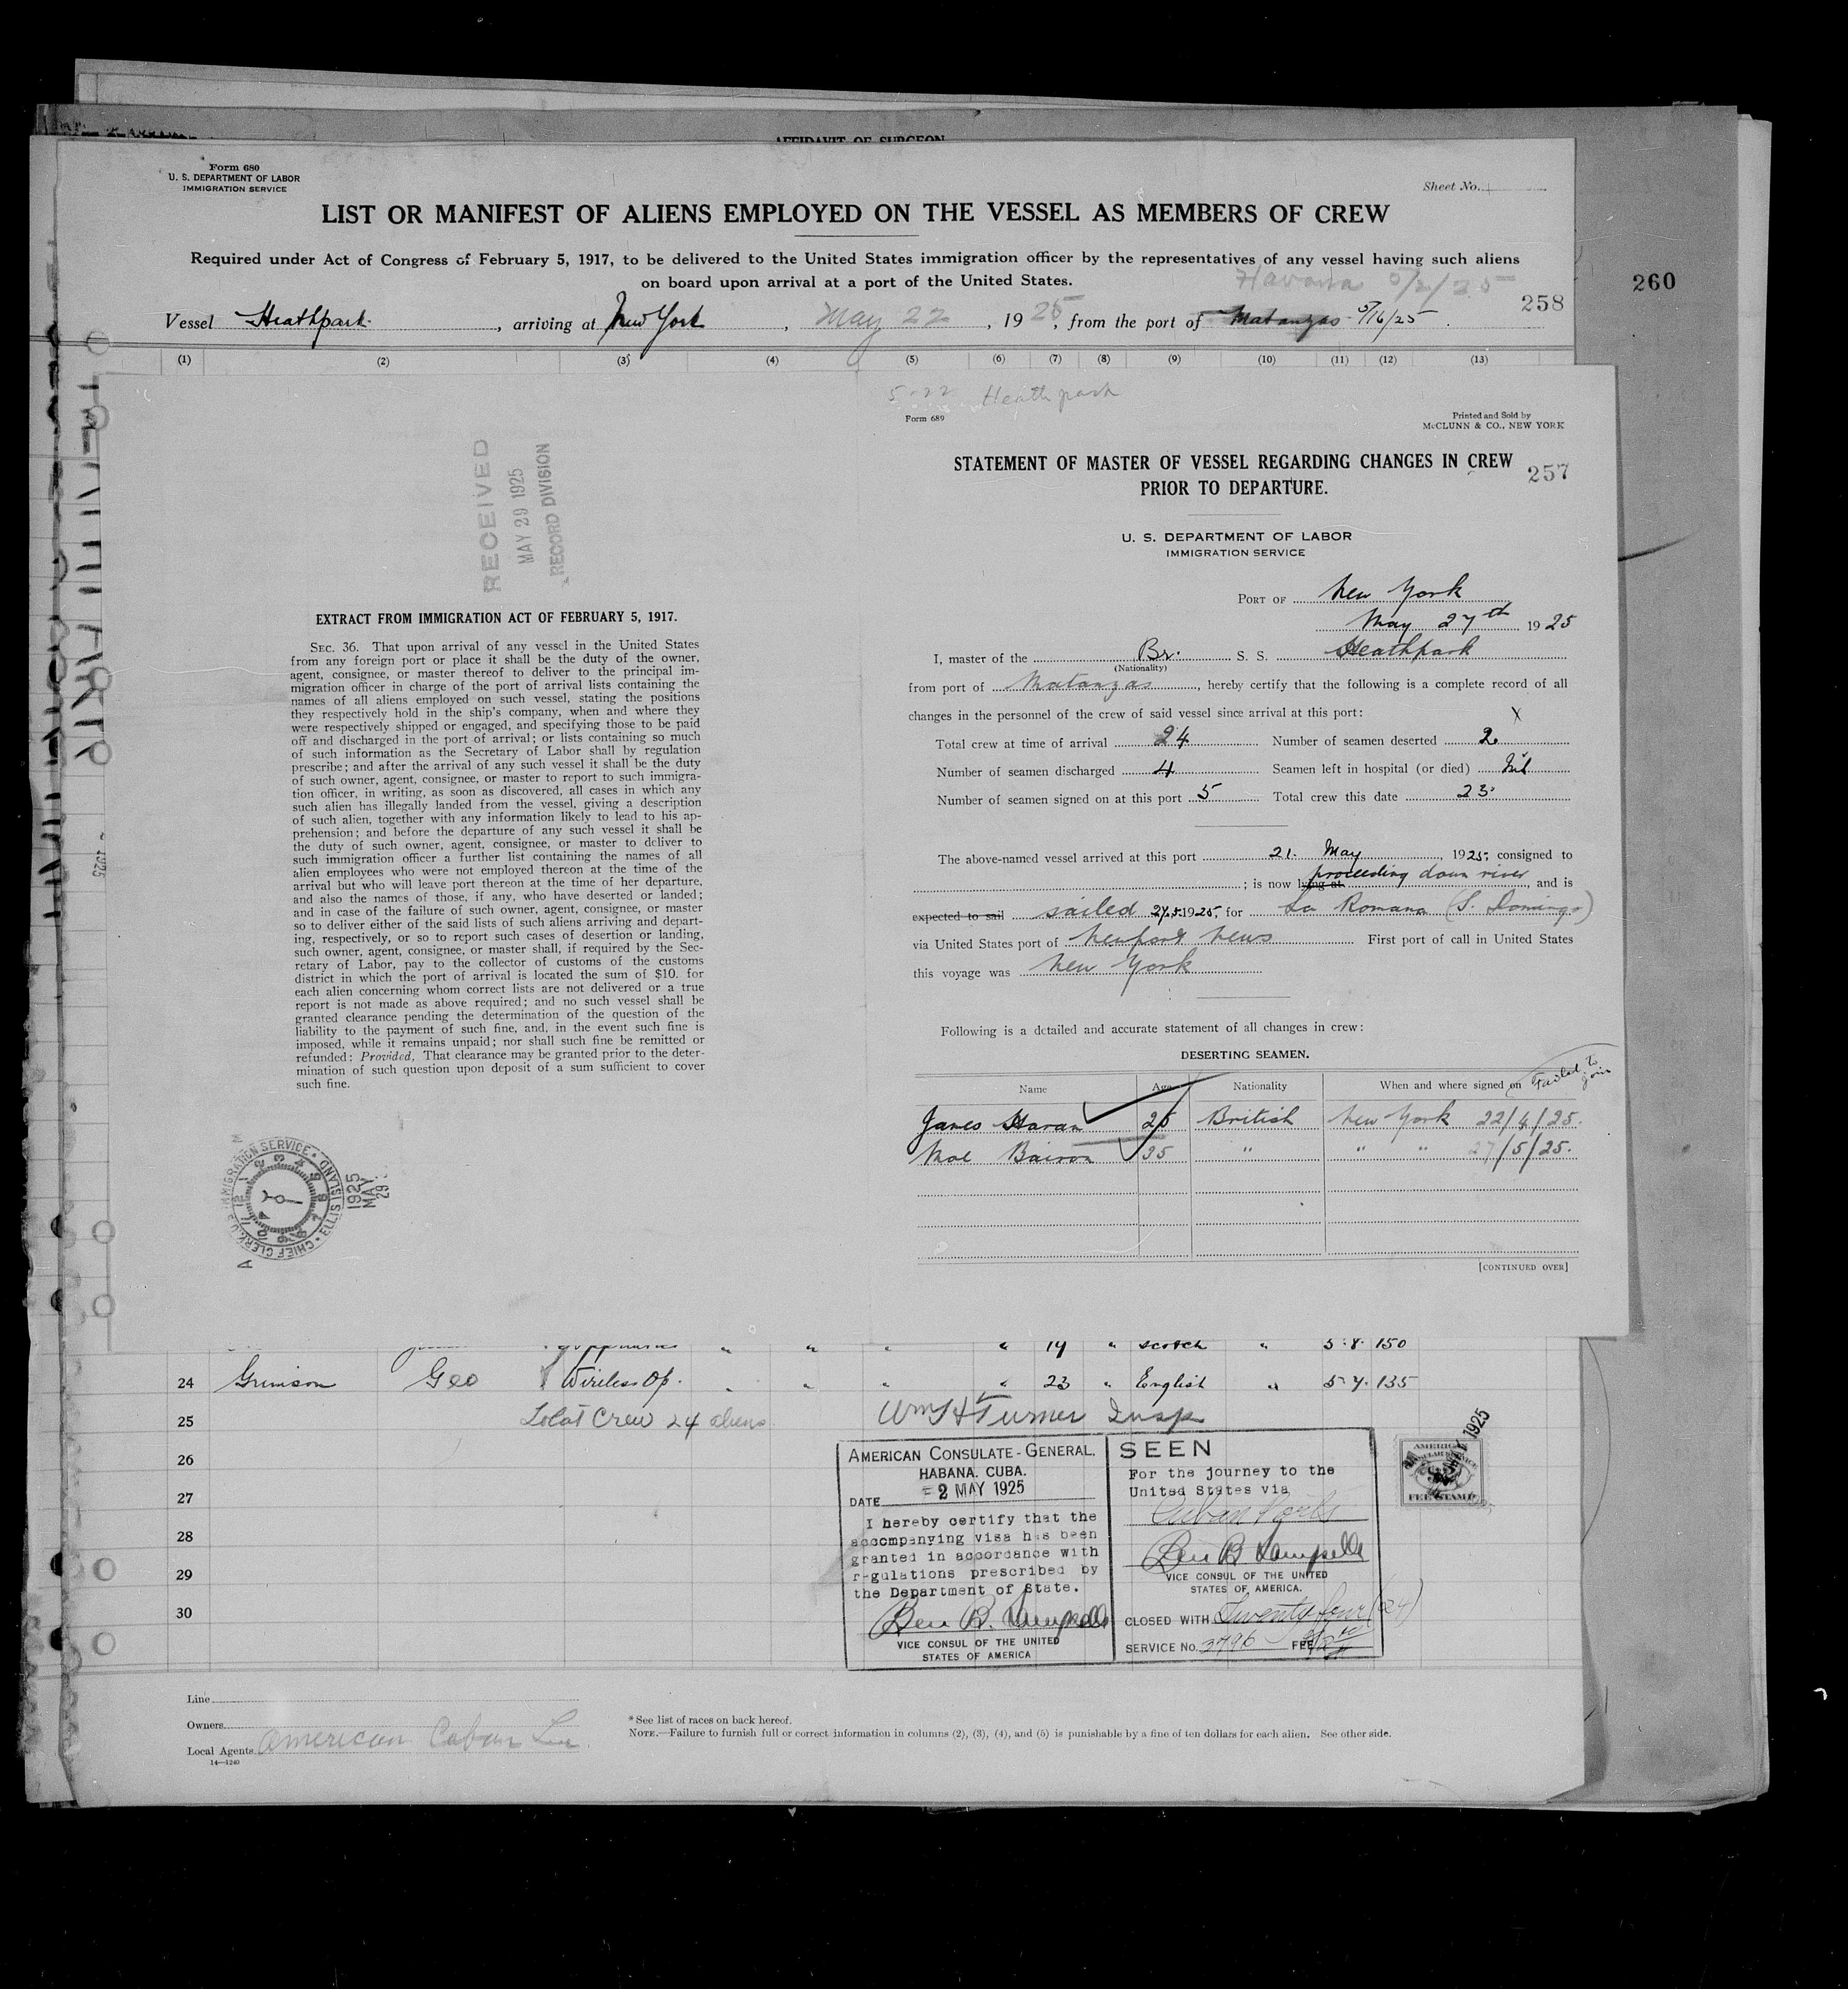 AFFIDAVIT OF SURGEON
Form 680
U. S. DEPARTMENT OF LABOR
IMMIGRATION SERVICE
Sheet No.
LIST OR MANIFEST OF ALIENS EMPLOYED ON THE VESSEL AS MEMBERS OF CREW
Required under Act of Congress of February 5, 1917, to be delivered to the United States immigration officer by the representatives of any vessel having such aliens
on board upon arrival at a port of the United States.
Havana 5/2/25
260
258
Vessel Heathpark, arriving at New York, May 22, 1925, from the port of Matanzas 5/16/25.
(1) (2) (3) (4) (5) (6) (7) (8) (9) (10) (11) (12) (13)
RECEIVED
MAY 29 1925
RECORD DIVISION
EXTRACT FROM IMMIGRATION ACT OF FEBRUARY 5, 1917.
SEC. 36. That upon arrival of any vessel in the United States
from any foreign port or place it shall be the duty of the owner,
agent, consignee, or master thereof to deliver to the principal im-
migration officer in charge of the port of arrival lists containing the
names of all aliens employed on such vessel, stating the positions
they respectively hold in the ship's company, when and where they
were respectively shipped or engaged, and specifying those to be paid
off and discharged in the port of arrival; or lists containing so much
of such information as the Secretary of Labor shall by regulation
prescribe; and after the arrival of any such vessel it shall be the duty
of such owner, agent, consignee, or master to report to such immigra-
tion officer, in writing, as soon as discovered, all cases in which any
such alien has illegally landed from the vessel, giving a description
of such alien, together with any information likely to lead to his ap-
prehension; and before the departure of any such vessel it shall be
the duty of such owner, agent, consignee, or master to deliver to
such immigration officer a further list containing the names of all
alien employees who were not employed thereon at the time of the
arrival but who will leave port thereon at the time of her departure,
and also the names of those, if any, who have deserted or landed;
and in case of the failure of such owner, agent, consignee, or master
so to deliver either of the said lists of such aliens arriving and depart-
ing, respectively, or so to report such cases of desertion or landing,
such owner, agent, consignee, or master shall, if required by the Sec-
retary of Labor, pay to the collector of customs of the customs
district in which the port of arrival is located the sum of $10. for
each alien concerning whom correct lists are not delivered or a true
report is not made as above required; and no such vessel shall be
granted clearance pending the determination of the question of the
liability to the payment of such fine, and, in the event such fine is
imposed, while it remains unpaid; nor shall such fine be remitted or
refunded: Provided, That clearance may be granted prior to the deter-
mination of such question upon deposit of a sum sufficient to cover
such fine.
IMMIGRATION SERVICE
ELLIS ISLAND
CHIEF CLERK
1925
MAY
29
5-22 Heathpark
Form 689
Printed and Sold by
McCLUNN & CO., NEW YORK
STATEMENT OF MASTER OF VESSEL REGARDING CHANGES IN CREW
PRIOR TO DEPARTURE.
257
U. S. DEPARTMENT OF LABOR
IMMIGRATION SERVICE
PORT OF New York
May 27th 1925
I, master of the Br. S. S. Heathpark
(Nationality)
from port of Matanzas, hereby certify that the following is a complete record of all
changes in the personnel of the crew of said vessel since arrival at this port:
Total crew at time of arrival 24 Number of seamen deserted 2
Number of seamen discharged 4 Seamen left in hospital (or died) Nil
Number of seamen signed on at this port 5 Total crew this date 23
The above-named vessel arrived at this port 21. May, 1925, consigned to
proceeding down river
; is now lying at, and is
expected to sail sailed 27.5.1925, for La Romana (S. Domingo)
via United States port of Newport News First port of call in United States
this voyage was New York
Following is a detailed and accurate statement of all changes in crew:
DESERTING SEAMEN.
Name Age Nationality When and where signed on Failed to join
James Haran 25 British New York 22/4/25.
Moe Bairon 35 " " " 27/5/25.
[CONTINUED OVER]
" " " " 19 " Scotch " 5.8. 150
24 Grimson Geo Wireless Op. " " " " 23 " English " 5.7. 135
25 Total Crew 24 aliens Wm H Turner Insp
26
27
28
29
30
AMERICAN CONSULATE-GENERAL.
HABANA. CUBA.
DATE 2 MAY 1925
I hereby certify that the
accompanying visa has been
granted in accordance with
regulations prescribed by
the Department of State.
VICE CONSUL OF THE UNITED
STATES OF AMERICA
SEEN
For the journey to the
United States via
Cuban Ports
VICE CONSUL OF THE UNITED
STATES OF AMERICA.
CLOSED WITH Twenty four (24)
SERVICE No. 3796 FEE
AMERICAN
CONSULAR SERVICE
FEE STAMP
MAY 1925
Line
Owners
Local Agents American Cuban Line
14—1240
*See list of races on back hereof.
NOTE.—Failure to furnish full or correct information in columns (2), (3), (4), and (5) is punishable by a fine of ten dollars for each alien. See other side.